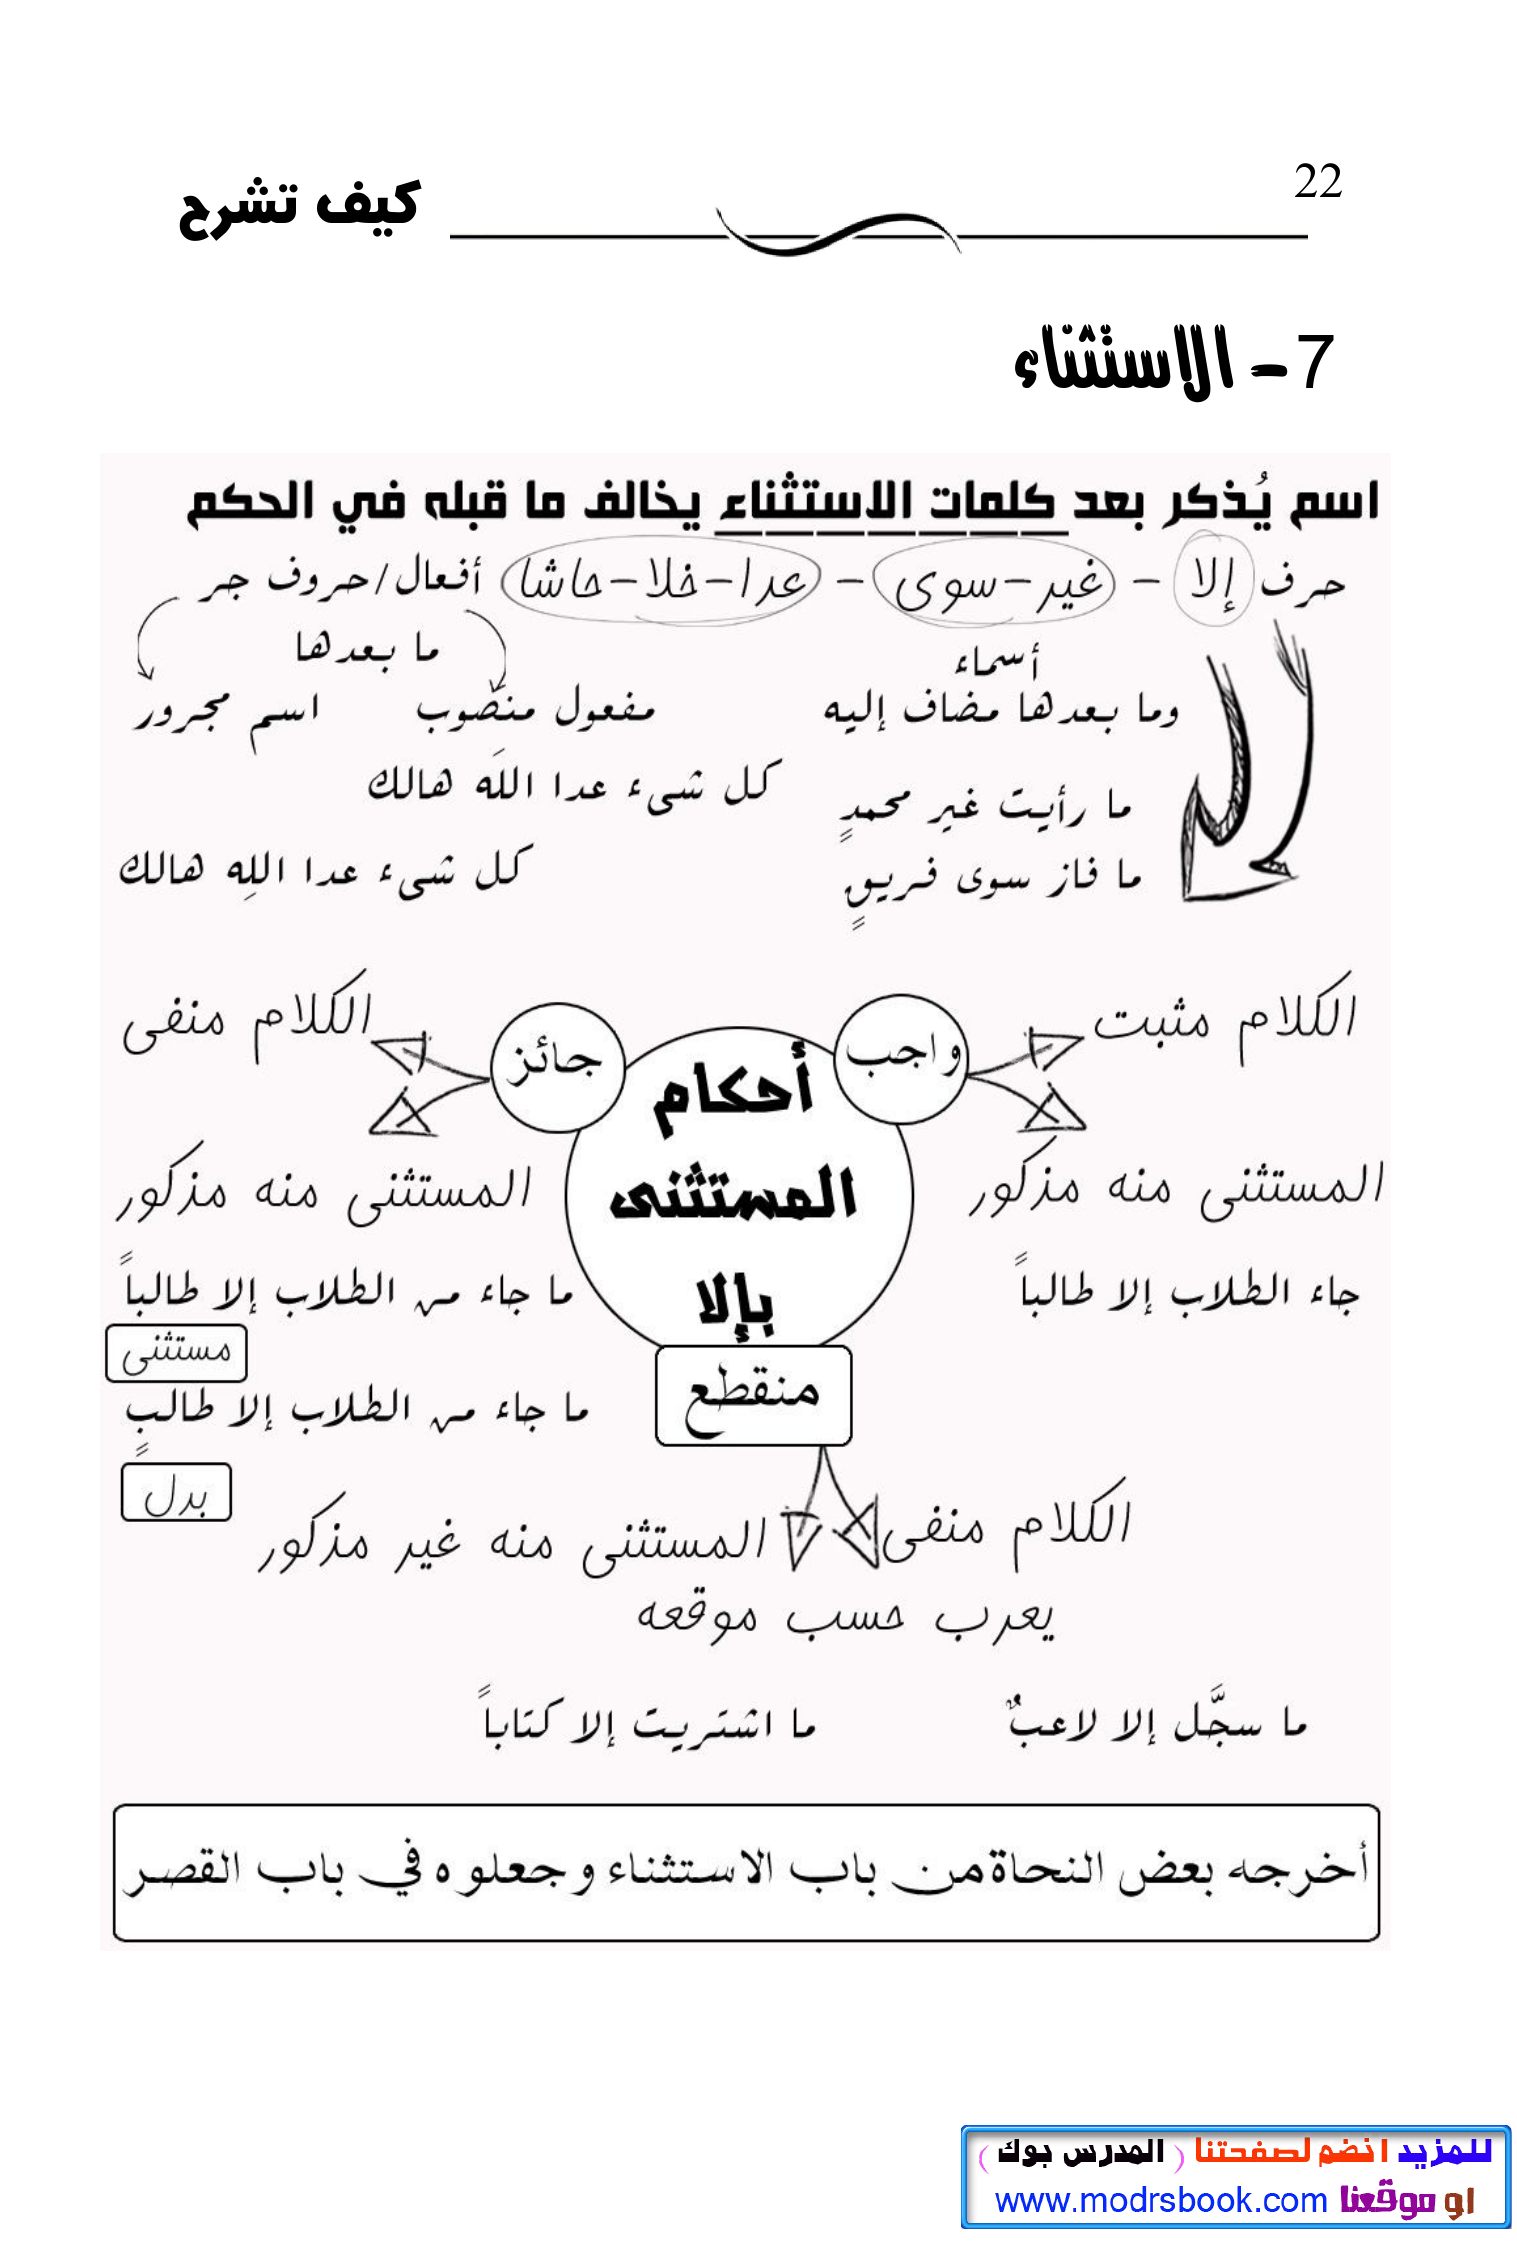 22
كيف تشرح
7 - الاستثناء
اسم يُذكر بعد كلمات الاستثناء يخالف ما قبله في الحكم
حرف إلا - غير-سوى - عدا-خلا-حاشا أفعال/حروف جر
أسماء
ما بعدها
وما بعدها مضاف إليه
مفعول منصوب
اسم مجرور
ما رأيت غير محمدٍ
كل شىء عدا اللَه هالك
ما فاز سوى فريقٍ
كل شىء عدا اللِه هالك
أحكام
المستثنى
بإلا
واجب
الكلام مثبت
المستثنى منه مذكور
جاء الطلاب إلا طالباً
جائز
الكلام منفى
المستثنى منه مذكور
ما جاء من الطلاب إلا طالباً
مستثنى
ما جاء من الطلاب إلا طالبٍ
بدل
منقطع
الكلام منفى
المستثنى منه غير مذكور
يعرب حسب موقعه
ما سجَّل إلا لاعبٌ
ما اشتريت إلا كتاباً
أخرجه بعض النحاة من باب الاستثناء وجعلوه في باب القصر
للمزيد انضم لصفحتنا ( المدرس بوك )
او موقعنا www.modrsbook.com